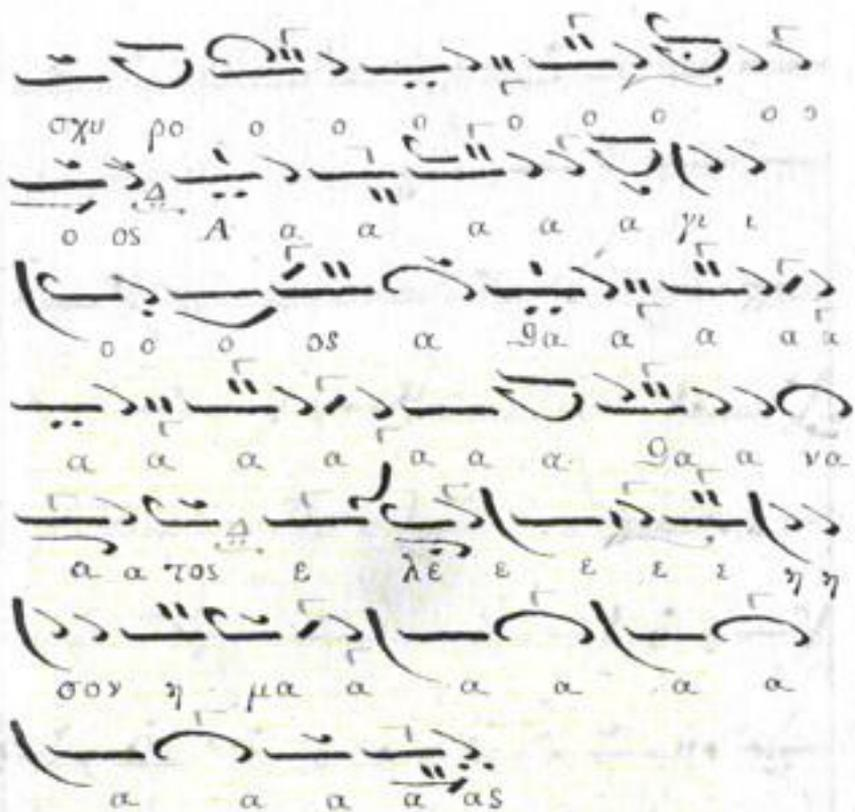 σχυ ρο ο ο ο ο ο ο ο ο
ο ος Α α α α α α γι ι
ο ο ο ος α θα α α α α
α α α α α α α θα α να
α α τος ε λε ε ε ε ε η η
σον η μα α α α α α
α α α α ας